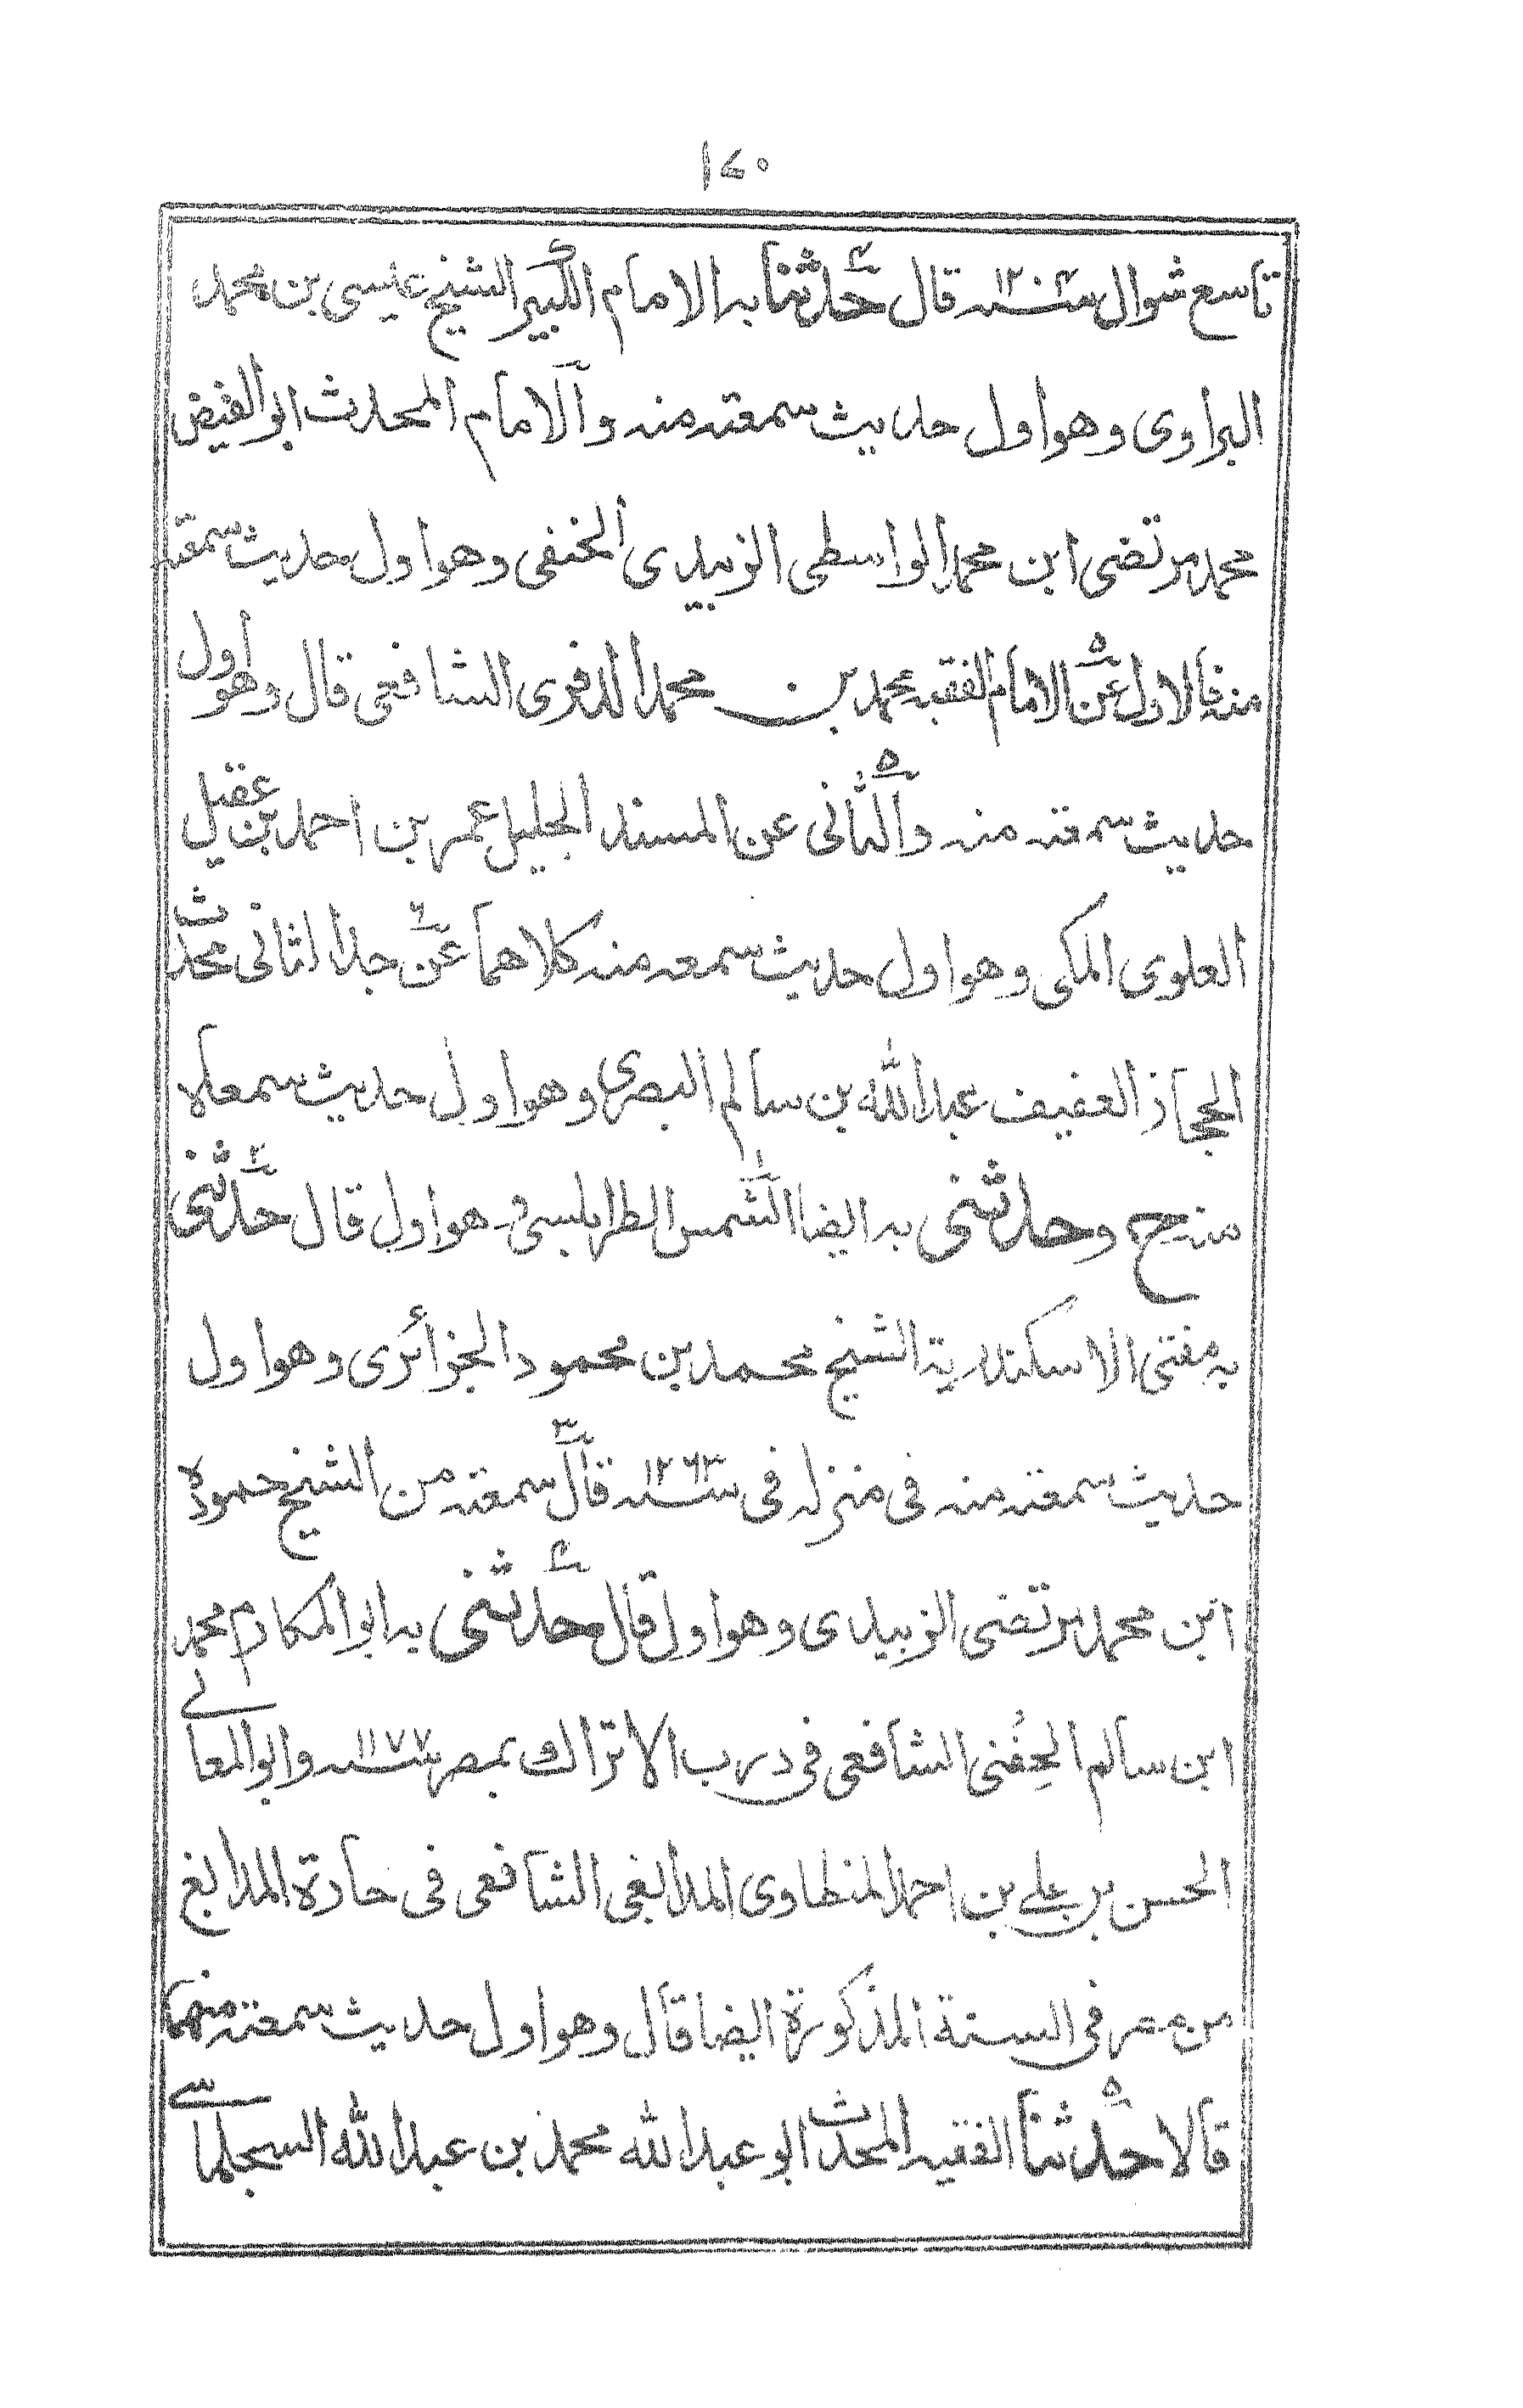 ١٤٠
تاسع شوال سنة ١٢٠٤ قال حدثنا به الامام الكبير الشيخ عيسى بن محمد
البراوى وهو اول حديث سمعته منه والامام المحدث ابو الفيض
محمد مرتضى ابن محمد الواسطى الزبيدى الحنفى وهو اول حديث سمعته
منه فالاول عن الامام الفقيه محمد بن محمد الدفرى الشافعى قال وهو اول
حديث سمعته منه والثانى عن المسند الجليل عمر بن احمد بن عقيل
العلوى المكى وهو اول حديث سمعه منه كلاهما عن جد الثانى محدث
الحجاز العفيف عبد الله بن سالم البصرى وهو اول حديث سمعاه
منه ح وحدثنى به ايضا الشمس الطرابلسى وهو اول قال حدثنى
به مفتى الاسكندرية الشيخ محمد بن محمود الجزائرى وهو اول
حديث سمعته منه فى منزله فى سنة ١٢٦٣ قال سمعته من الشيخ حموده
ابن محمد مرتضى الزبيدى وهو اول قال حدثنى به ابو المكارم محمد
ابن سالم الحِفْنى الشافعى فى درب الاتراك بمصر سنة ١١٧٧ وابو المعالے
الحسن بن علے بن احمد المنطاوى المدابغى الشافعى فى حارة المدابغ
من مصر فى السنة المذكورة ايضا قال وهو اول حديث سمعته منهما
قالا حدثنا الفقيه المحدث ابو عبد الله محمد بن عبد الله السجلماسے